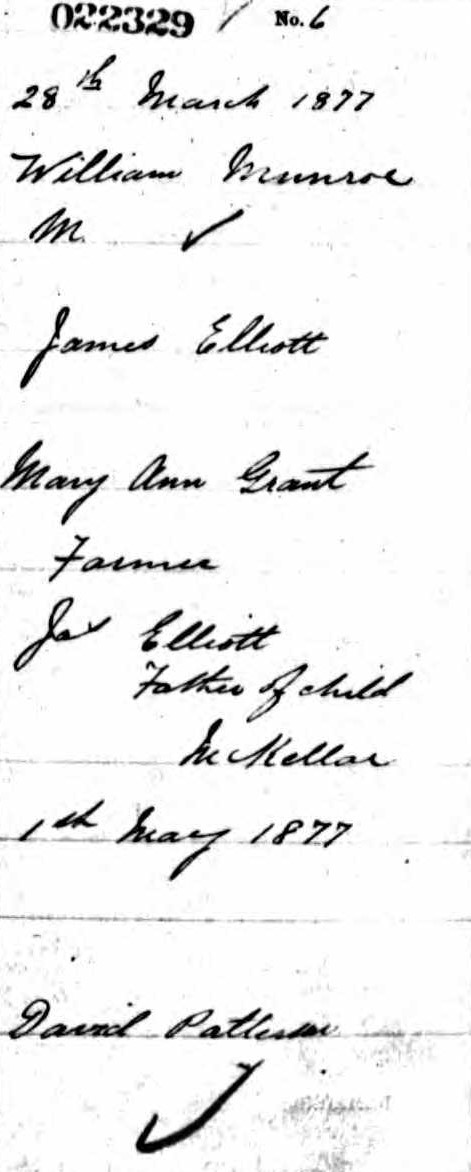 022329 No. 6
28th March 1877
William Munroe
M. ✓
James Elliott
Mary Ann Grant
Farmer
Jas Elliott
Father of child
McKellar
1st May 1877
David Patterson